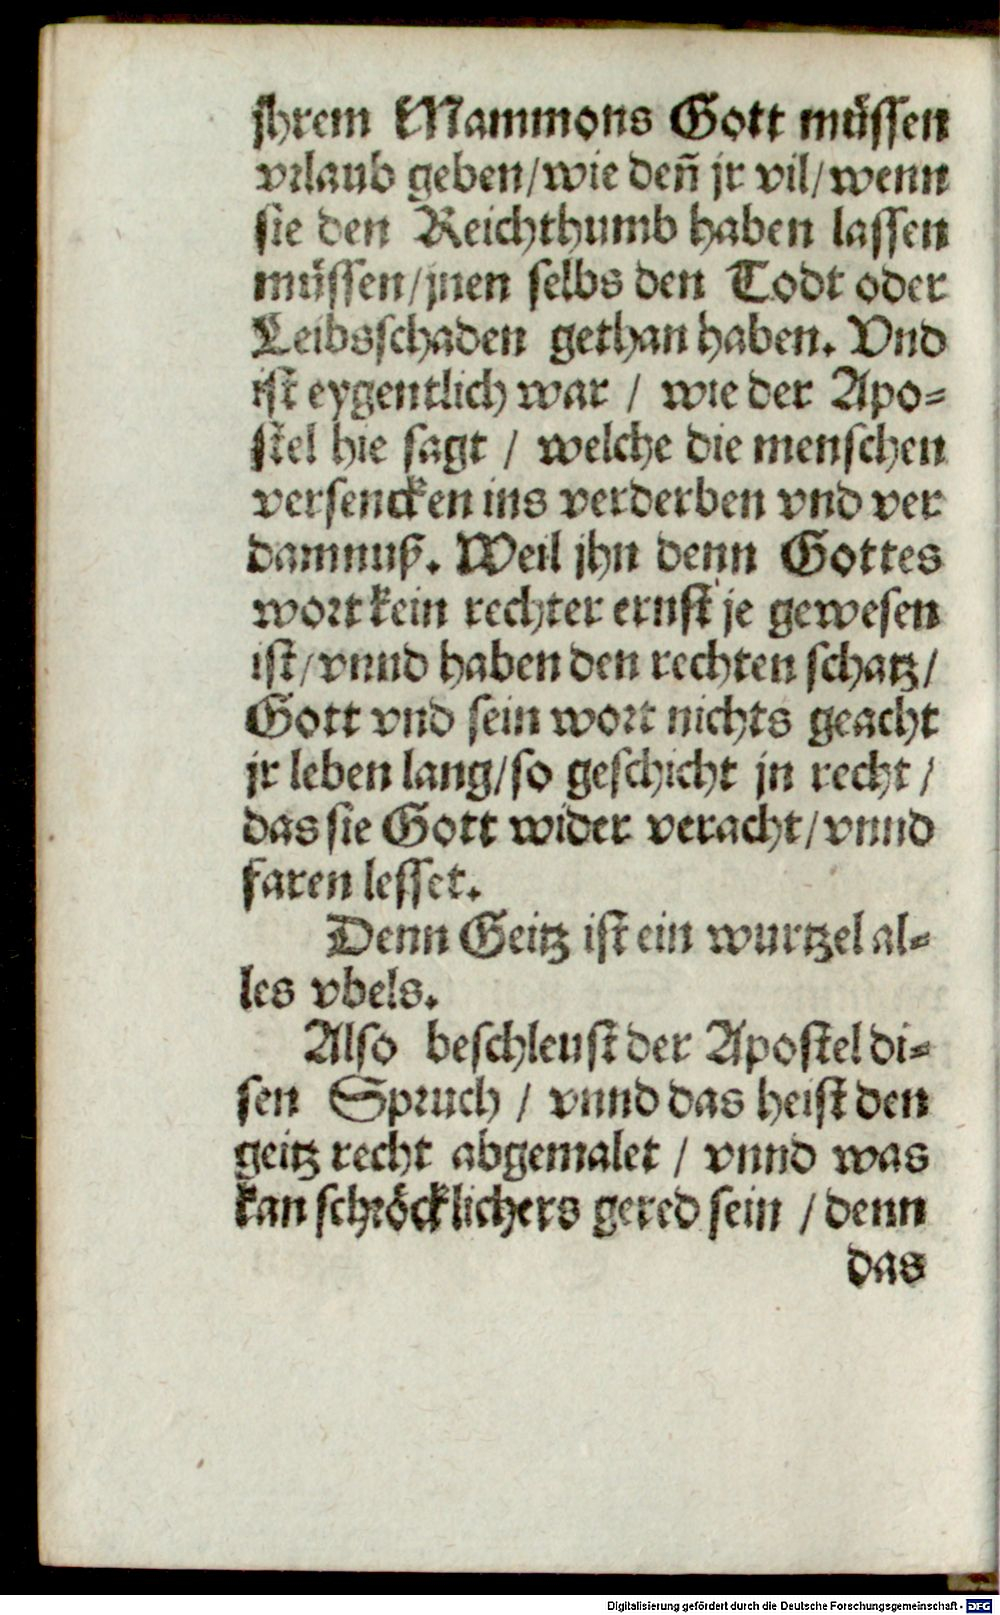 jhrem Mammons Gott müssen
vrlaub geben/wie deñ jr vil/wenn
sie den Reichthumb haben lassen
müssen/jnen selbs den Todt oder
Leibsschaden gethan haben. Vnd
ist eygentlich war / wie der Apo-
stel hie sagt / welche die menschen
versencken ins verderben vnd ver
damnuß. Weil jhn denn Gottes
wort kein rechter ernst je gewesen
ist/vnnd haben den rechten schatz/
Gott vnd sein wort nichts geacht
jr leben lang/so geschicht jn recht/
das sie Gott wider veracht/vnnd
faren lesset.
Denn Geitz ist ein wurtzel al-
les vbels.
Also beschleust der Apostel di-
sen Spruch / vnnd das heist den
geitz recht abgemalet / vnnd was
kan schröcklichers gered sein / denn
das
Digitalisierung gefördert durch die Deutsche Forschungsgemeinschaft - DFG